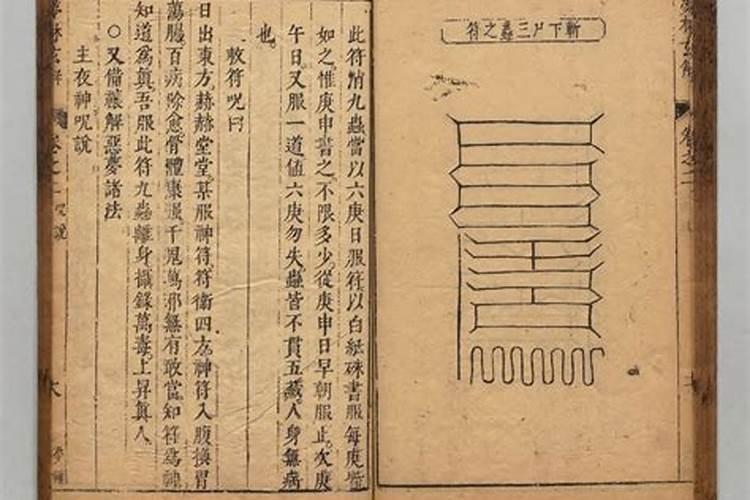 斬下尸三蟲之符
此符消九蟲當以六庚日服符以白紙硃書服每庚
如之惟庚申書之不限多少從庚申日早朝服止次庚
午日又服一道値六庚勿失蟲皆不貫五藏人身無病
也
敕符呪曰
日出東方赫赫堂堂某服神符符衛四方神符入腹換胃
萬腸百病除愈骨體康 千鬼萬邪無有敢當知符爲神
知道爲眞吾服此符九蟲離身攝錄萬毒上昇眞人
○又備禳解惡夢諸法
主夜神呪說